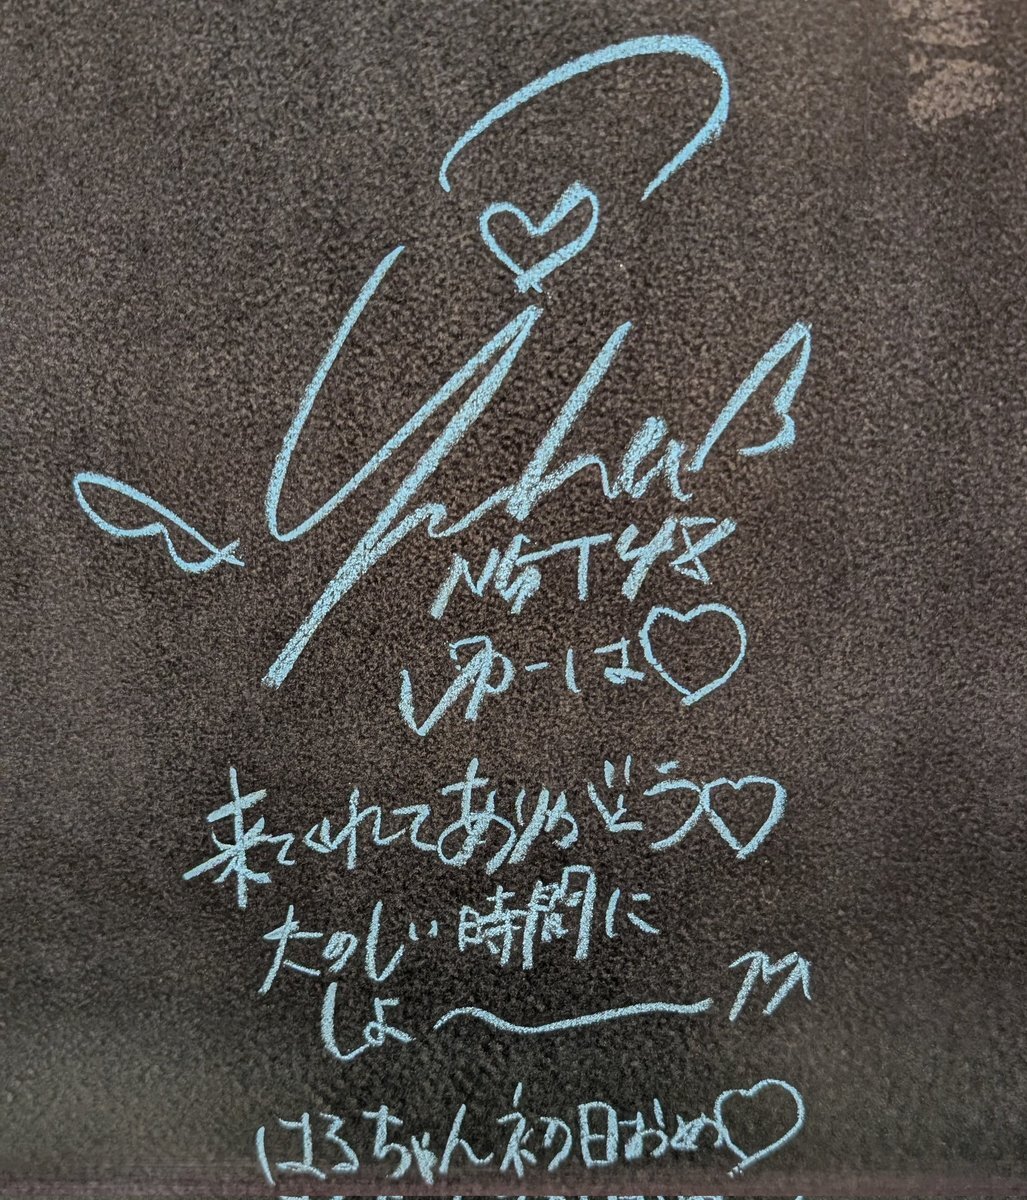 Yuha
NGT48
ゆーは♡
来てくれてありがどう♡
たのしい時間に
しよ〜
はるちゃん初日おめ♡